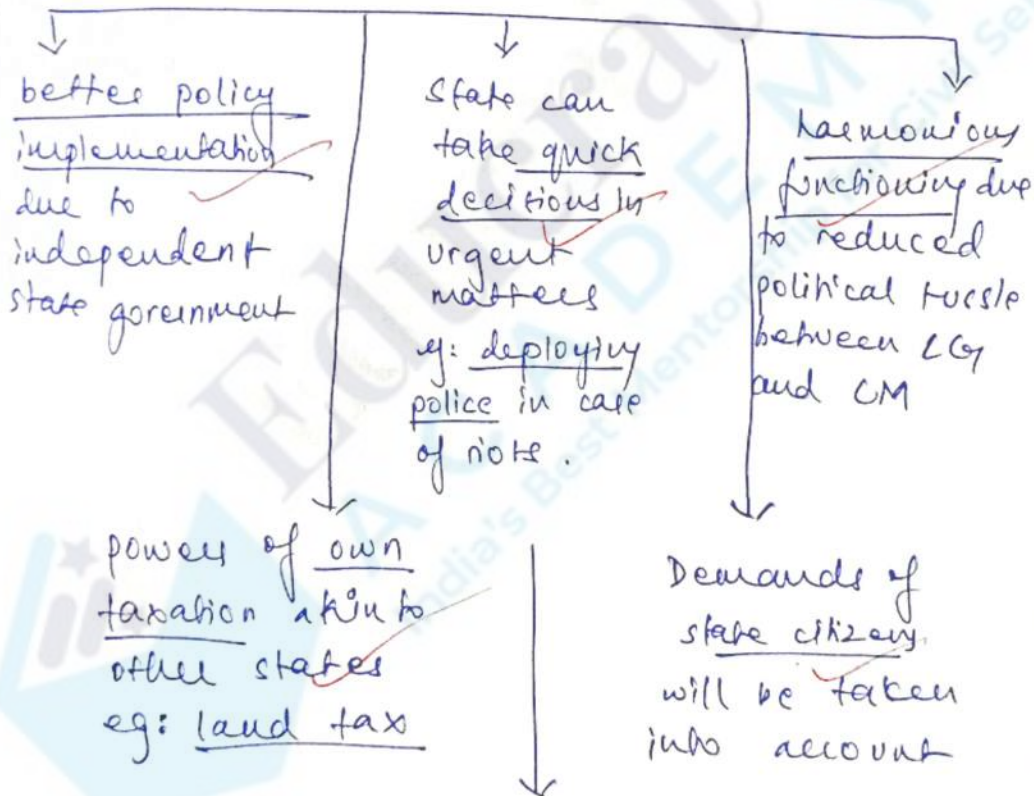 better policy
implementation
due to
independent
state government
State can
take quick
decisions in
urgent
matters
eg: deploying
police in case
of riots.
harmonious
functioning due
to reduced
political tussle
between LG
and CM
powers of own
taxation akin to
other states
eg: land tax
Demands of
state citizens
will be taken
into account
Educra
ACADEMY
India's Best Mentor for Civil Ser